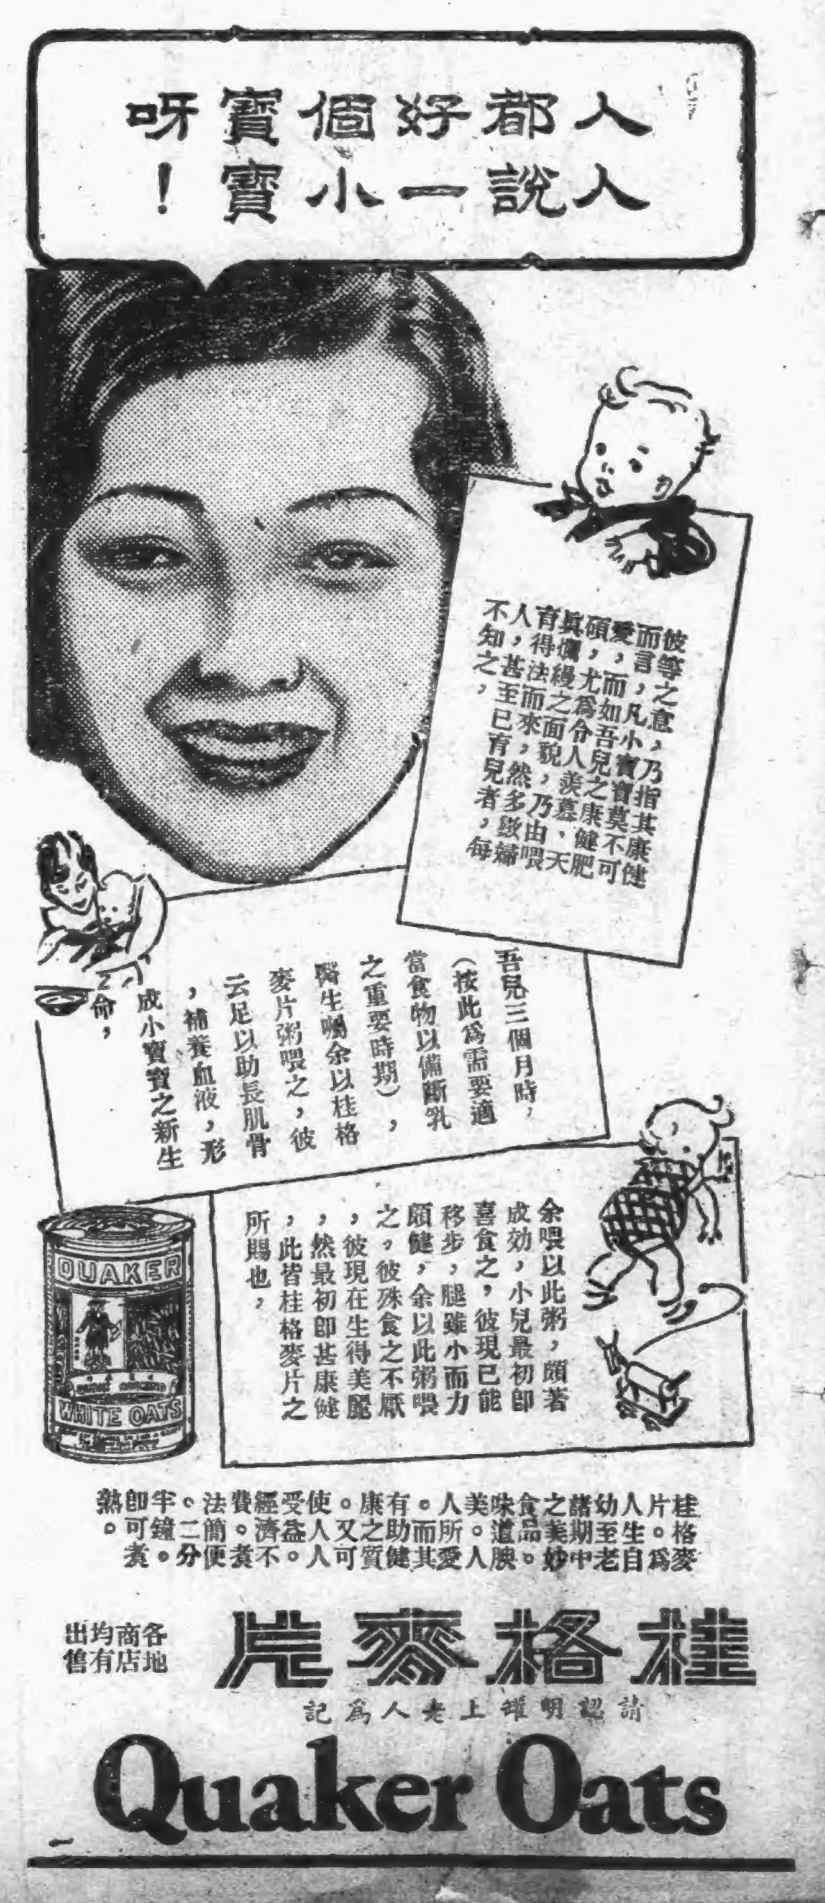 人人
都說
好一
個小
寶寶
呀!
彼等之意,乃指其康健
而言,凡小寶寶莫不可
愛,而如吾兒之康健肥
碩,尤爲令人羨慕、天
眞爛縵之面貌,乃由喂
育得法而來,然多數婦
人,甚至已育兒者,每
不知之,
吾兒三個月時,
(按此爲需要適
當食物以備斷乳
之重要時期),
醫生囑余以桂格
麥片粥喂之,彼
云足以助長肌骨
,補養血液,形
成小寶寶之新生
命,
余喂以此粥,頗著
成効,小兒最初卽
喜食之,彼現已能
移步,腿雖小而力
頗健,余以此粥喂
之。彼殊食之不厭
,彼現在生得美麗
,然最初卽甚康健
,此皆桂格麥片之
所賜也,
QUAKER
WHITE OATS
桂格麥
片。爲
人生自
幼至老
諸期中
之美妙
食品。
味道腴
美。人
人所愛
。而其
有助健
康之質
。又可
使人人
受益。
經濟不
費。煮
法簡便
。二分
半鐘。
卽可煮
熟。
桂格麥片
各地
商店
均有
出售
請認明罐上老人爲記
Quaker Oats